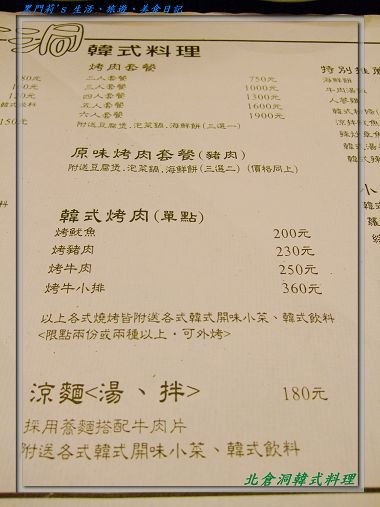 黑門莉's 生活、旅遊、美食日記
洞
韓式料理
烤肉套餐
二人套餐 750元
三人套餐 1000元
四人套餐 1300元
五人套餐 1600元
六人套餐 1900元
附送豆腐煲,泡菜鍋,海鮮餅(三選一)
原味烤肉套餐(豬肉)
附送豆腐煲,泡菜鍋,海鮮餅(三選二) (價格同上)
韓式烤肉(單點)
烤魷魚 200元
烤豬肉 230元
烤牛肉 250元
烤牛小排 360元
以上各式燒烤皆附送各式韓式開味小菜、韓式飲料
<限點兩份或兩種以上,可外烤>
涼麵<湯、拌> 180元
採用蕎麵搭配牛肉片
附送各式韓式開味小菜、韓式飲料
特別推薦
海鮮餅
牛肉湯飯
人蔘雞
小
北倉洞韓式料理